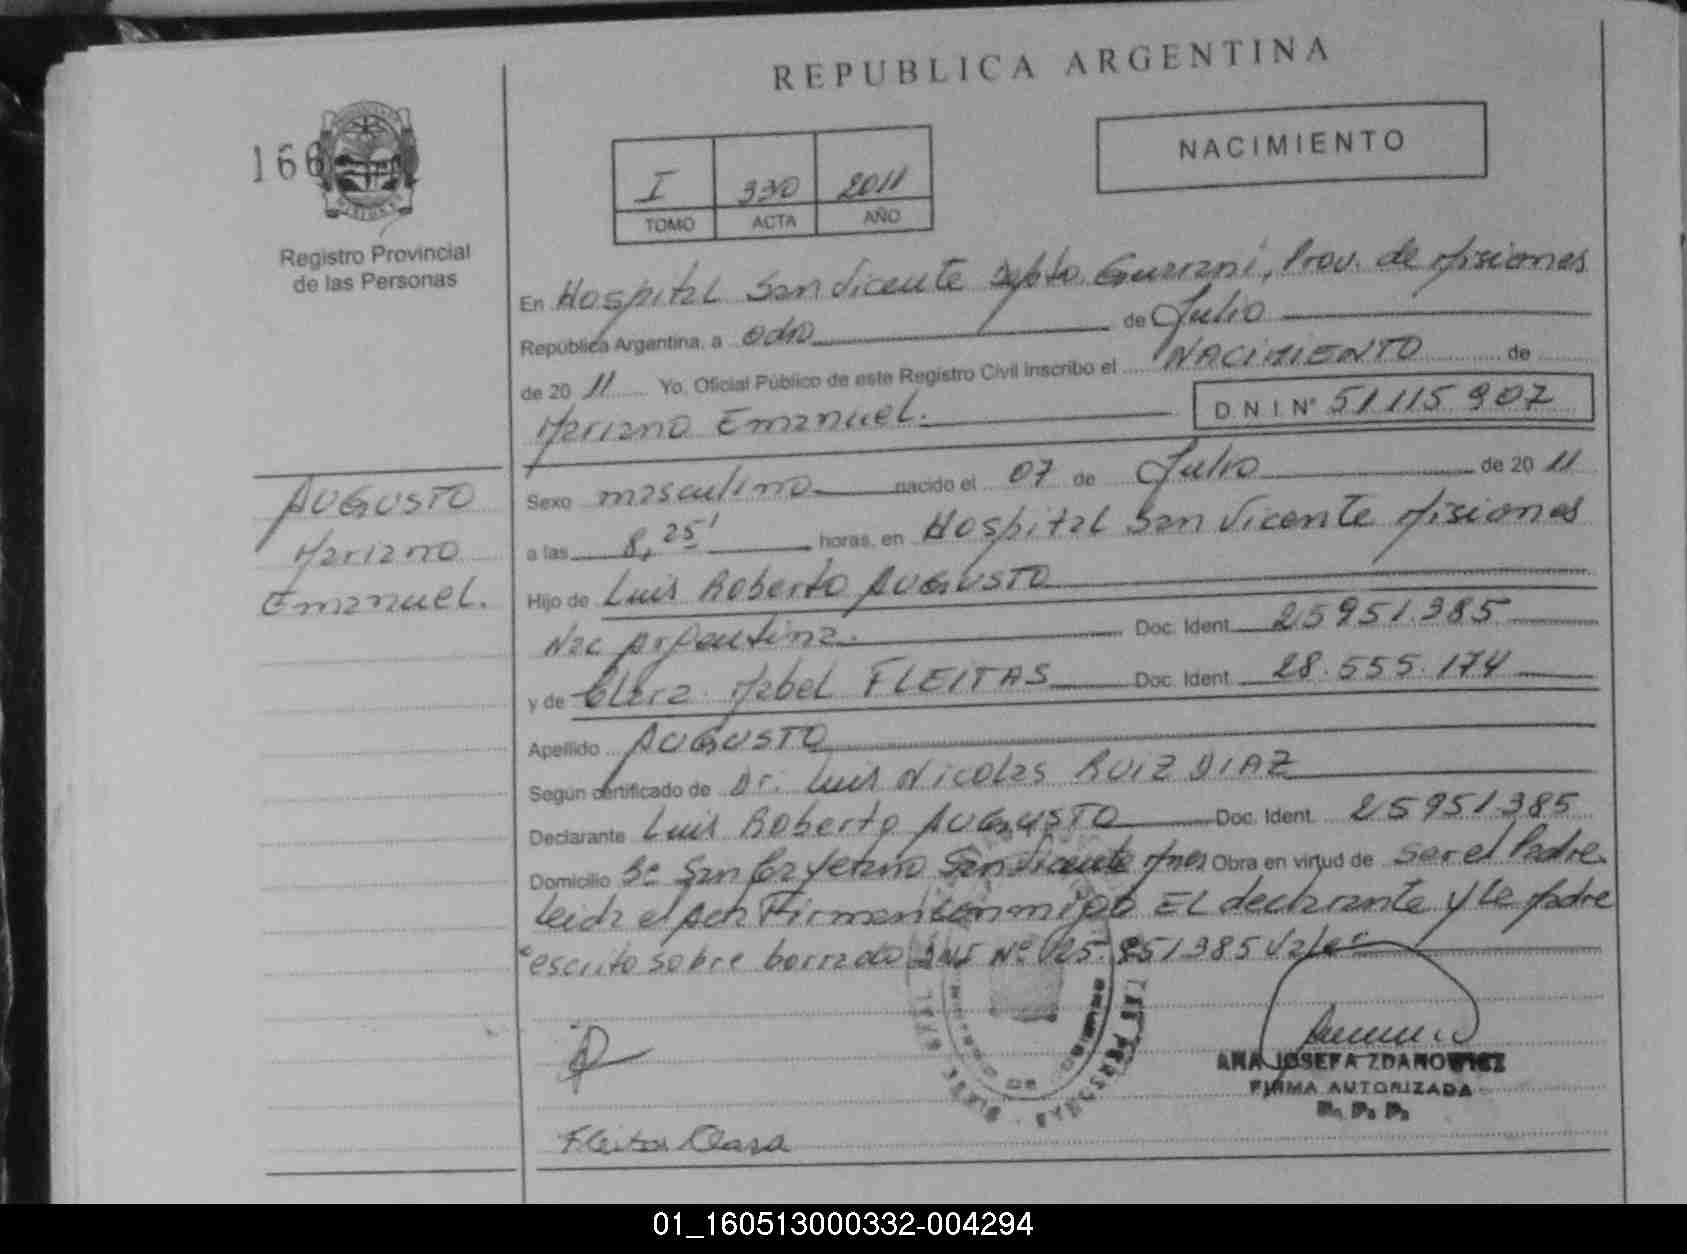 REPUBLICA ARGENTINA
166
NACIMIENTO
I 330 2011
TOMO ACTA AÑO
Registro Provincial
de las Personas
En Hospital San Vicente Depto. Guarani, Prov. de Misiones
República Argentina, a ocho de Julio
de 20 11 Yo, Oficial Público de este Registro Civil inscribo el NACIMIENTO de
Mariano Emanuel. D.N.I. N° 51115907
AUGUSTO
Mariano
Emanuel.
Sexo masculino nacido el 07 de Julio de 20 11
a las 8,25' horas, en Hospital San Vicente Misiones
Hijo de Luis Roberto AUGUSTO
Nac Argentina. Doc. Ident. 25951.385
y de Clara Mabel FLEITAS Doc. Ident. 28.555.174
Apellido AUGUSTO
Según certificado de Dr. Luis Nicolas RUIZ DIAZ
Declarante Luis Roberto AUGUSTO Doc. Ident. 25951385
Domicilio Bº San Cayetano San Vicente Mnes Obra en virtud de ser el Padre.
Leida el Acta Firman conmigo EL declarante y la Madre
"escrito sobre borrado DNI Nº 25.951385 Vale"
ANA JOSEFA ZDANOWICZ
FIRMA AUTORIZADA
R. P. P.
Fleitas Clara
01_160513000332-004294